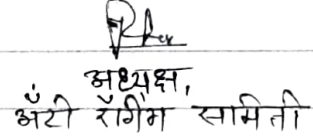 अध्यक्ष,
अँटी रॅगींग सामिती